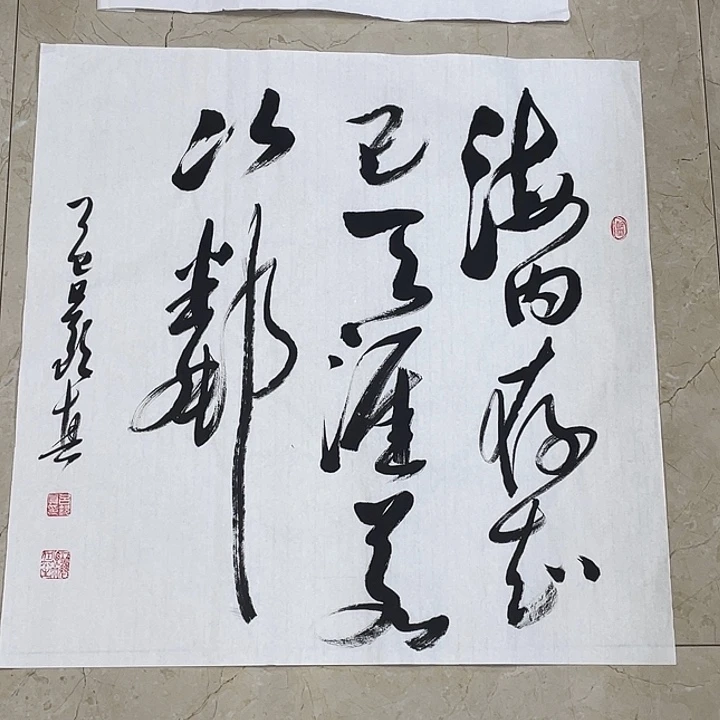 海内存知
己天涯若
比鄰